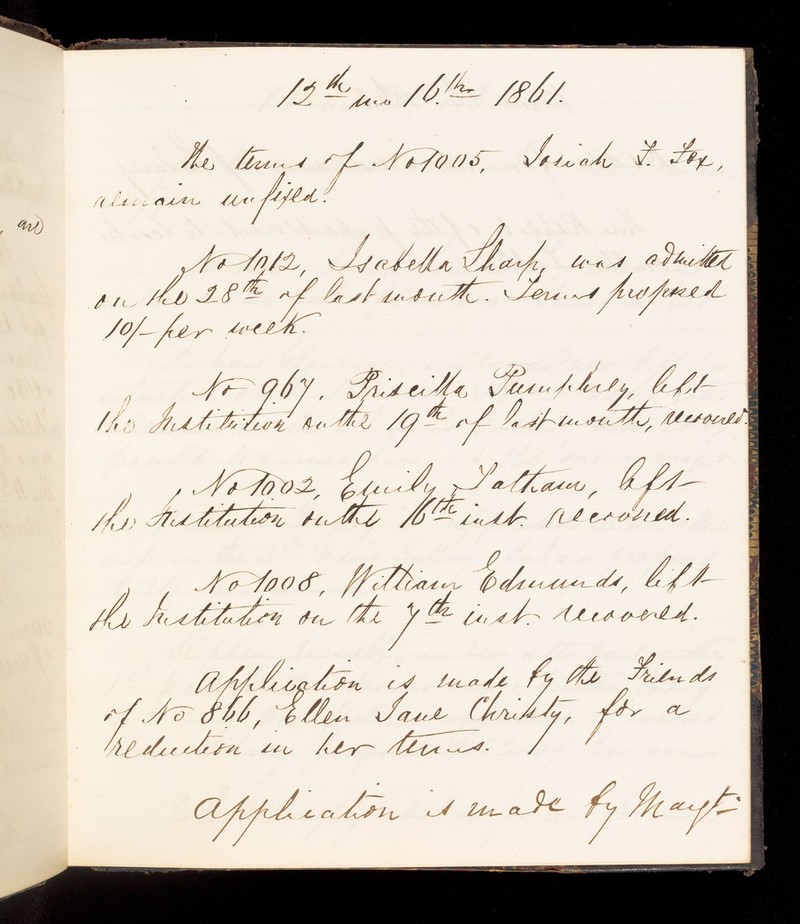 are
12th mo 16.th 1861.
The terms of No 1005, Josiah F. Fox,
remain unfixed.
No 1012, Isabella Sharp, was admitted
on the 28th of last month. Terms proposed
10/- per week.
No 967, Priscilla Pumphrey, left
the Institution on the 19th of last month, recovered.
No 1002, Emily Tatham, left
the Institution on the 16th inst. recovered.
No 1008, William Edmunds, left
the Institution on the 7th inst. recovered.
Application is made by the Friends
of No 866, Ellen Jane Christy, for a
reduction in her terms.
Application is made by Margt